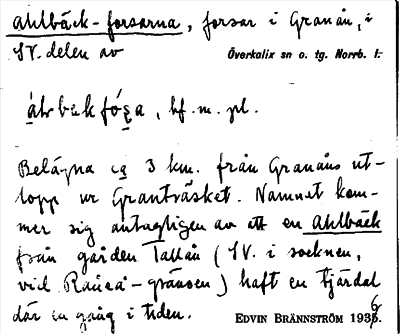 Ahlbäck-forsarna, forsar i Granån, i
SV. delen av Överkalix sn o. tg. Norrb. l.
bf. m. pl.
Belägna ca 3 km. från Granåns ut-
lopp ur Granträsket. Namnet kom-
mer sig antagligen av att en Ahlbäck
från gården Tallån (SV. i socknen,
vid Råneå-gränsen) haft en tjärdal
där en gång i tiden.
EDVIN BRÄNNSTRÖM 1936.